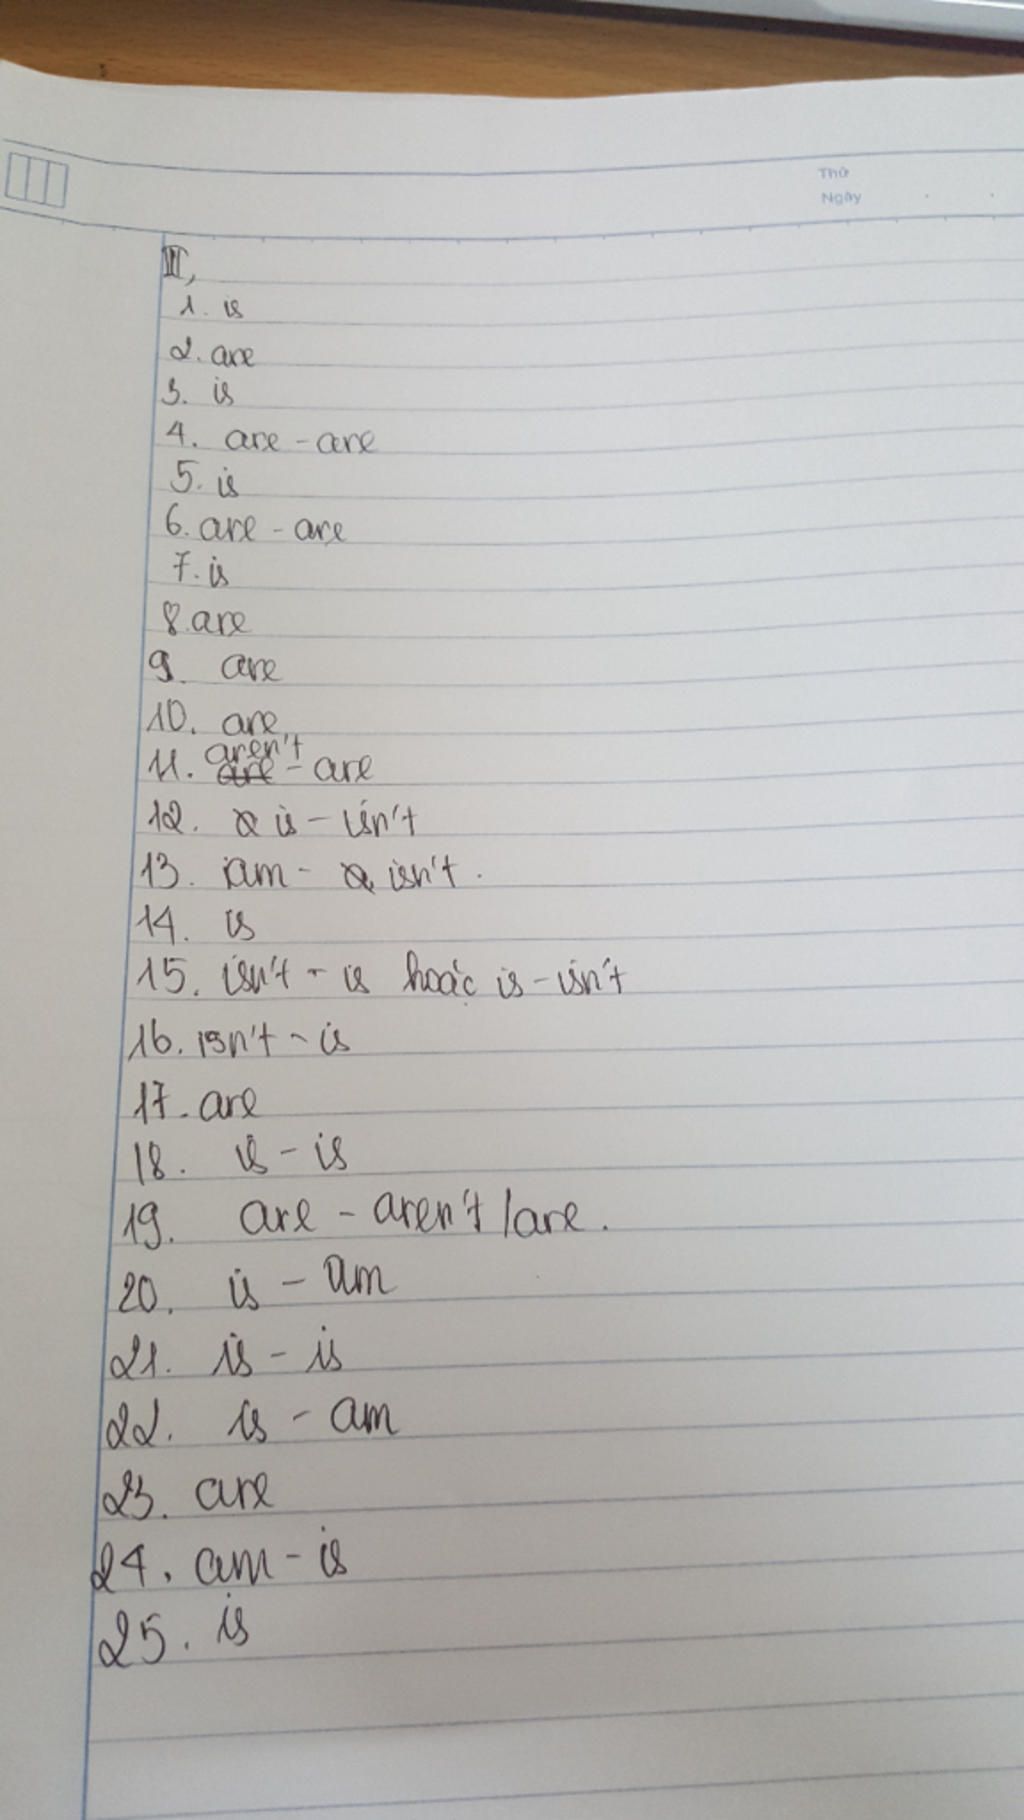 Thứ
Ngày
II,
1. is
2. are
3. is
4. are - are
5. is
6. are - are
7. is
8. are
9. are
10. are
11. aren't - are
12. is - isn't
13. am - isn't.
14. is
15. isn't - is hoặc is - isn't
16. isn't - is
17. are
18. is - is
19. are - aren't / are.
20. is - am
21. is - is
22. is - am
23. are
24. am - is
25. is